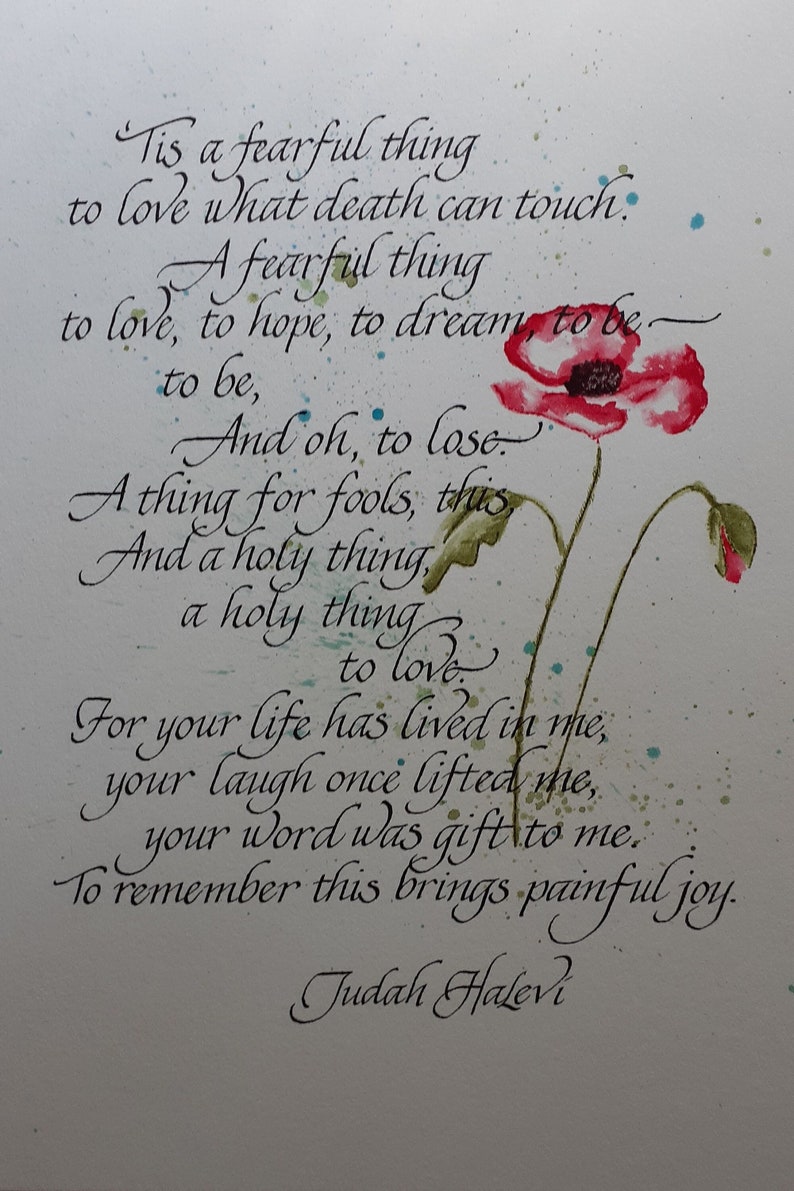 'Tis a fearful thing
to love what death can touch.
A fearful thing
to love, to hope, to dream, to be —
to be,
And oh, to lose.
A thing for fools, this,
And a holy thing,
a holy thing
to love.
For your life has lived in me,
your laugh once lifted me,
your word was gift to me.
To remember this brings painful joy.
Judah HaLevi